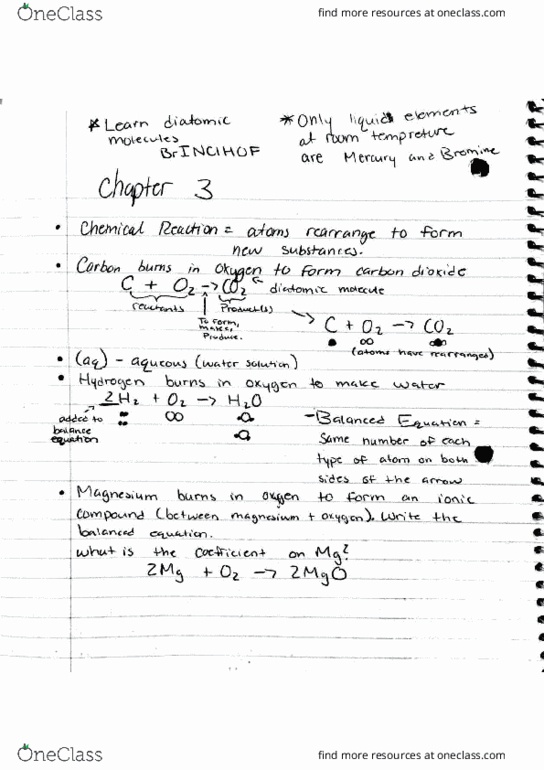 OneClass
find more resources at oneclass.com
* Learn diatomic molecules BrINClHOF
* Only liquid elements at room tempreture are Mercury and Bromine
Chapter 3
• Chemical Reaction = atoms rearrange to form
new substances.
• Carbon burns in oxygen to form carbon dioxide
C + O₂ → CO₂ ← diatomic molecule
reactants
Product(s)
To form, makes, Produce.
→ C + O₂ → CO₂
(atoms have rearranged)
• (aq) - aqueous (water solution)
• Hydrogen burns in oxygen to make water
2H₂ + O₂ → H₂O
added to balance equation
- Balanced Equation =
Same number of each
type of atom on both
sides of the arrow
• Magnesium burns in oxygen to form an ionic
compound (between magnesium + oxygen). Write the
balanced equation.
What is the coefficient on Mg?
2Mg + O₂ → 2MgO
OneClass
find more resources at oneclass.com